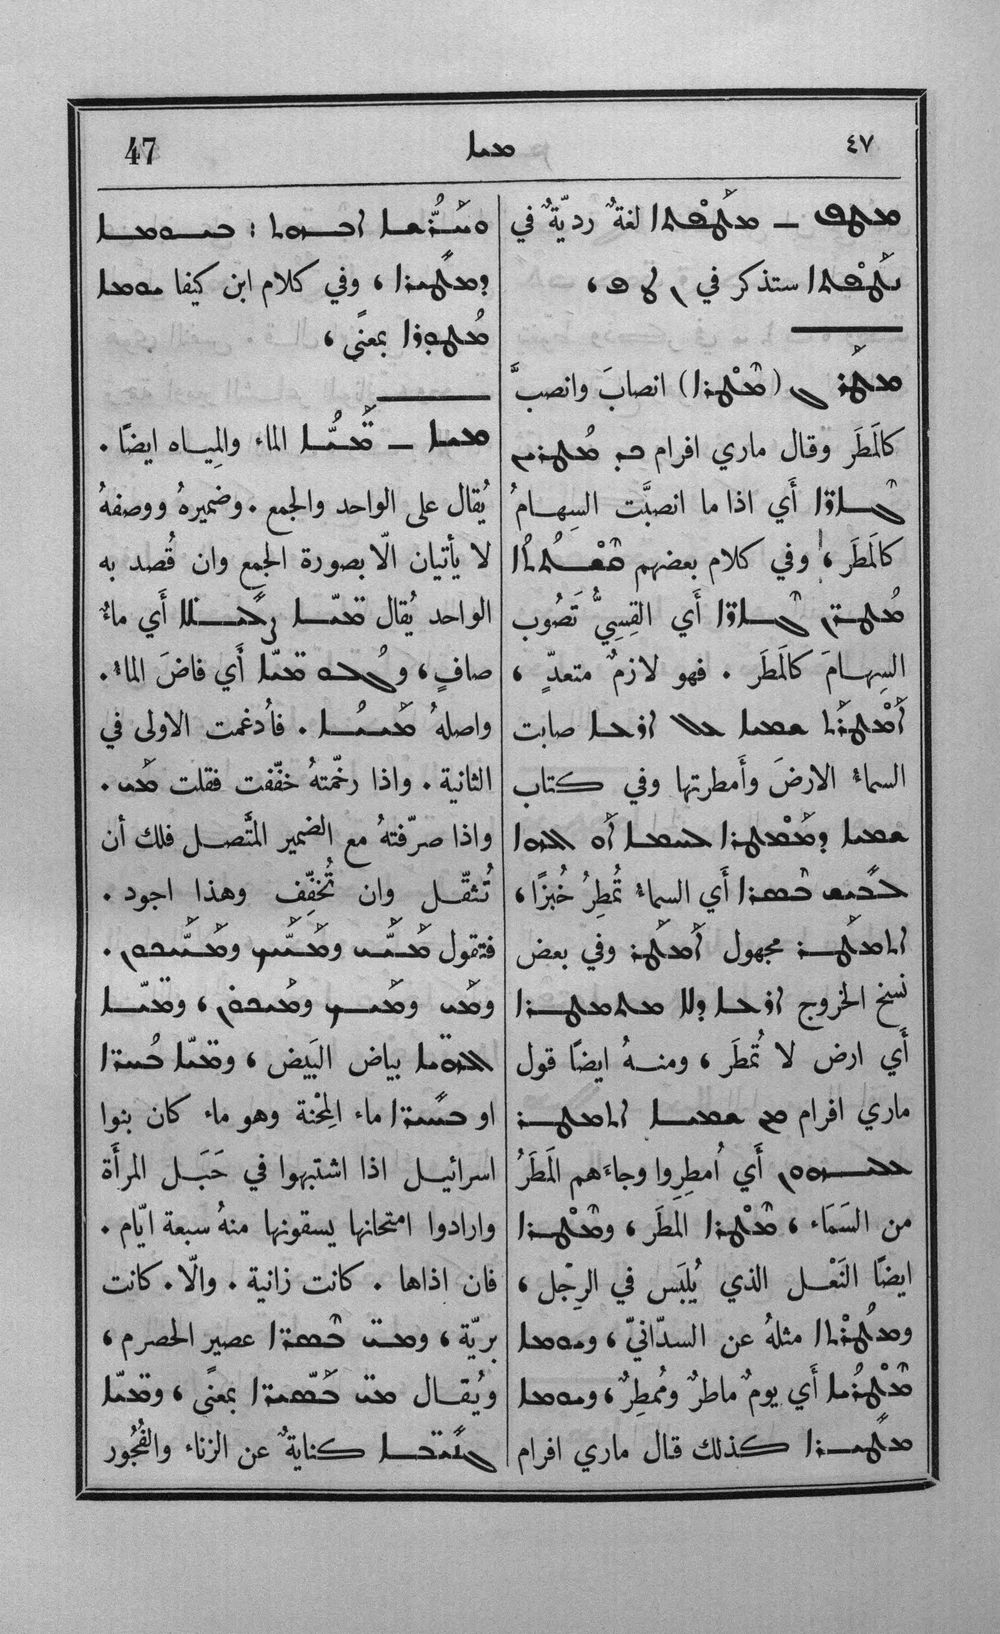 ٤٧ ܡܝܐ 47
ܡܛܦ ـ ܡܛܦܬܐ لغةٌ رديّةٌ في
ܢܛܦܬܐ ستذكر في ܢ ܛ ܦ ،
ܡܛܪ (ܡܛܪܐ) انصابَ وانصبَّ
كالمَطَر وقال ماري افرام ܟܕ ܡܛܪܝܢ
ܓܐܪ̈ܐ أَي اذا ما انصبَّت السِهامُ
كالمَطَر ، وفي كلام بعضهم ܩܫܬܬܐ
ܡܛܪ̈ܢ ܓܐܪ̈ܐ أَي القِسِيُّ تَصُوب
السِهامَ كالمَطَر . فهو لازمٌ متعدٍّ ،
ܐܡܛܪܬ ܫܡܝܐ ܥܠ ܐܪܥܐ صابت
السماءُ الارضَ وأَمطرتها وفي كتاب
ܫܡܝܐ ܕܡܡܛܪܐ ܠܚܡܐ ܐܘ
أَي السماءُ تُمطِرُ خُبزًا ،
ܐܬܡܛܪ مجهول ܐܡܛܪ وفي بعض
نسخ الخروج ܐܪܥܐ ܕܠܐ ܡܬܡܛܪܐ
أَي ارض لا تُمطَر ، ومنهُ ايضًا قول
ماري افرام ܡܢ ܫܡܝܐ ܐܬܡܛܪ
ܥܠܝܗܘܢ أَي اُمطِروا وجاءَهم المَطَرُ
من السَمَاء ، ܡܛܪܐ المَطَر ، ܘܡܛܪܐ
ايضًا النَعْل الذي يُلبَس في الرِجْل ،
مثلهُ عن السدّانيّ ، ܘܝܘܡܐ
ܡܛܪܢܐ أَي يومٌ ماطرٌ ومُمطِرٌ ، ܘܝܘܡܐ
ܡܛܝܪܐ كذلك قال ماري افرام
ܕܡܛܝܪܐ ، وفي كلام ابن كيفا ܝܘܡܐ
ܡܛܘܪܐ بمعنًى ،
ܡܝܐ ـ ܡܝ̈ܐ الماء والمِياه ايضًا .
يُقال على الواحد والجمع . وضميرهُ ووصفهُ
لا يأتيان الّا بصورة الجمع وان قُصد به
الواحد يُقال ܡܝ̈ܐ ܨܠܝ̈ܠܐ أَي ماءٌ
صافٍ ، ܡܝ̈ܐ أَي فاضَ الماءُ .
واصلهُ ܡܝܝܐ . فاُدغمت الاولى في
الثانية . واذا رخّمتهُ خفّفت فقلت ܡܝ .
واذا صرّفتهُ مع الضمير المتَّصل فلك أن
تُثقّل وان تُخفِّف وهذا اجود .
فتقول ܡܝܝ ܘܡܝܝܟ ܘܡܝܝܟܘܢ .
ܘܡܝ ܘܡܝܟ ܘܡܝܟܘܢ ، ܘܡܝ̈ܐ
بياض البَيض ، ܘܡܝ̈ܐ ܒܚܝܪ̈ܐ
او ܒܚܝܪ̈ܐ ماء المِحْنة وهو ماء كان بنوا
اسرائيل اذا اشتبهوا في حَبَل المرأَة
وارادوا امتحانها يسقونها منهُ سبعة ايّام .
فان اذاها . كانت زانية . والّا . كانت
بريّة ، عصير الحصرم ،
ويُقال بمعنًى ، ܘܡܝ̈ܐ
ܓܢܝ̈ܒܐ كنايةٌ عن الزناء والفُجُور